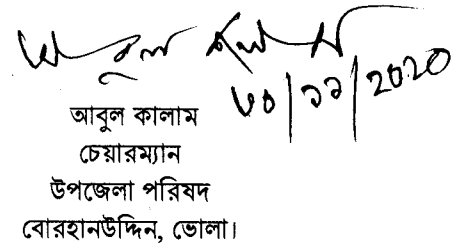 আবুল কালাম
৩০/১১/২০২০
আবুল কালাম
চেয়ারম্যান
উপজেলা পরিষদ
বোরহানউদ্দিন, ভোলা।